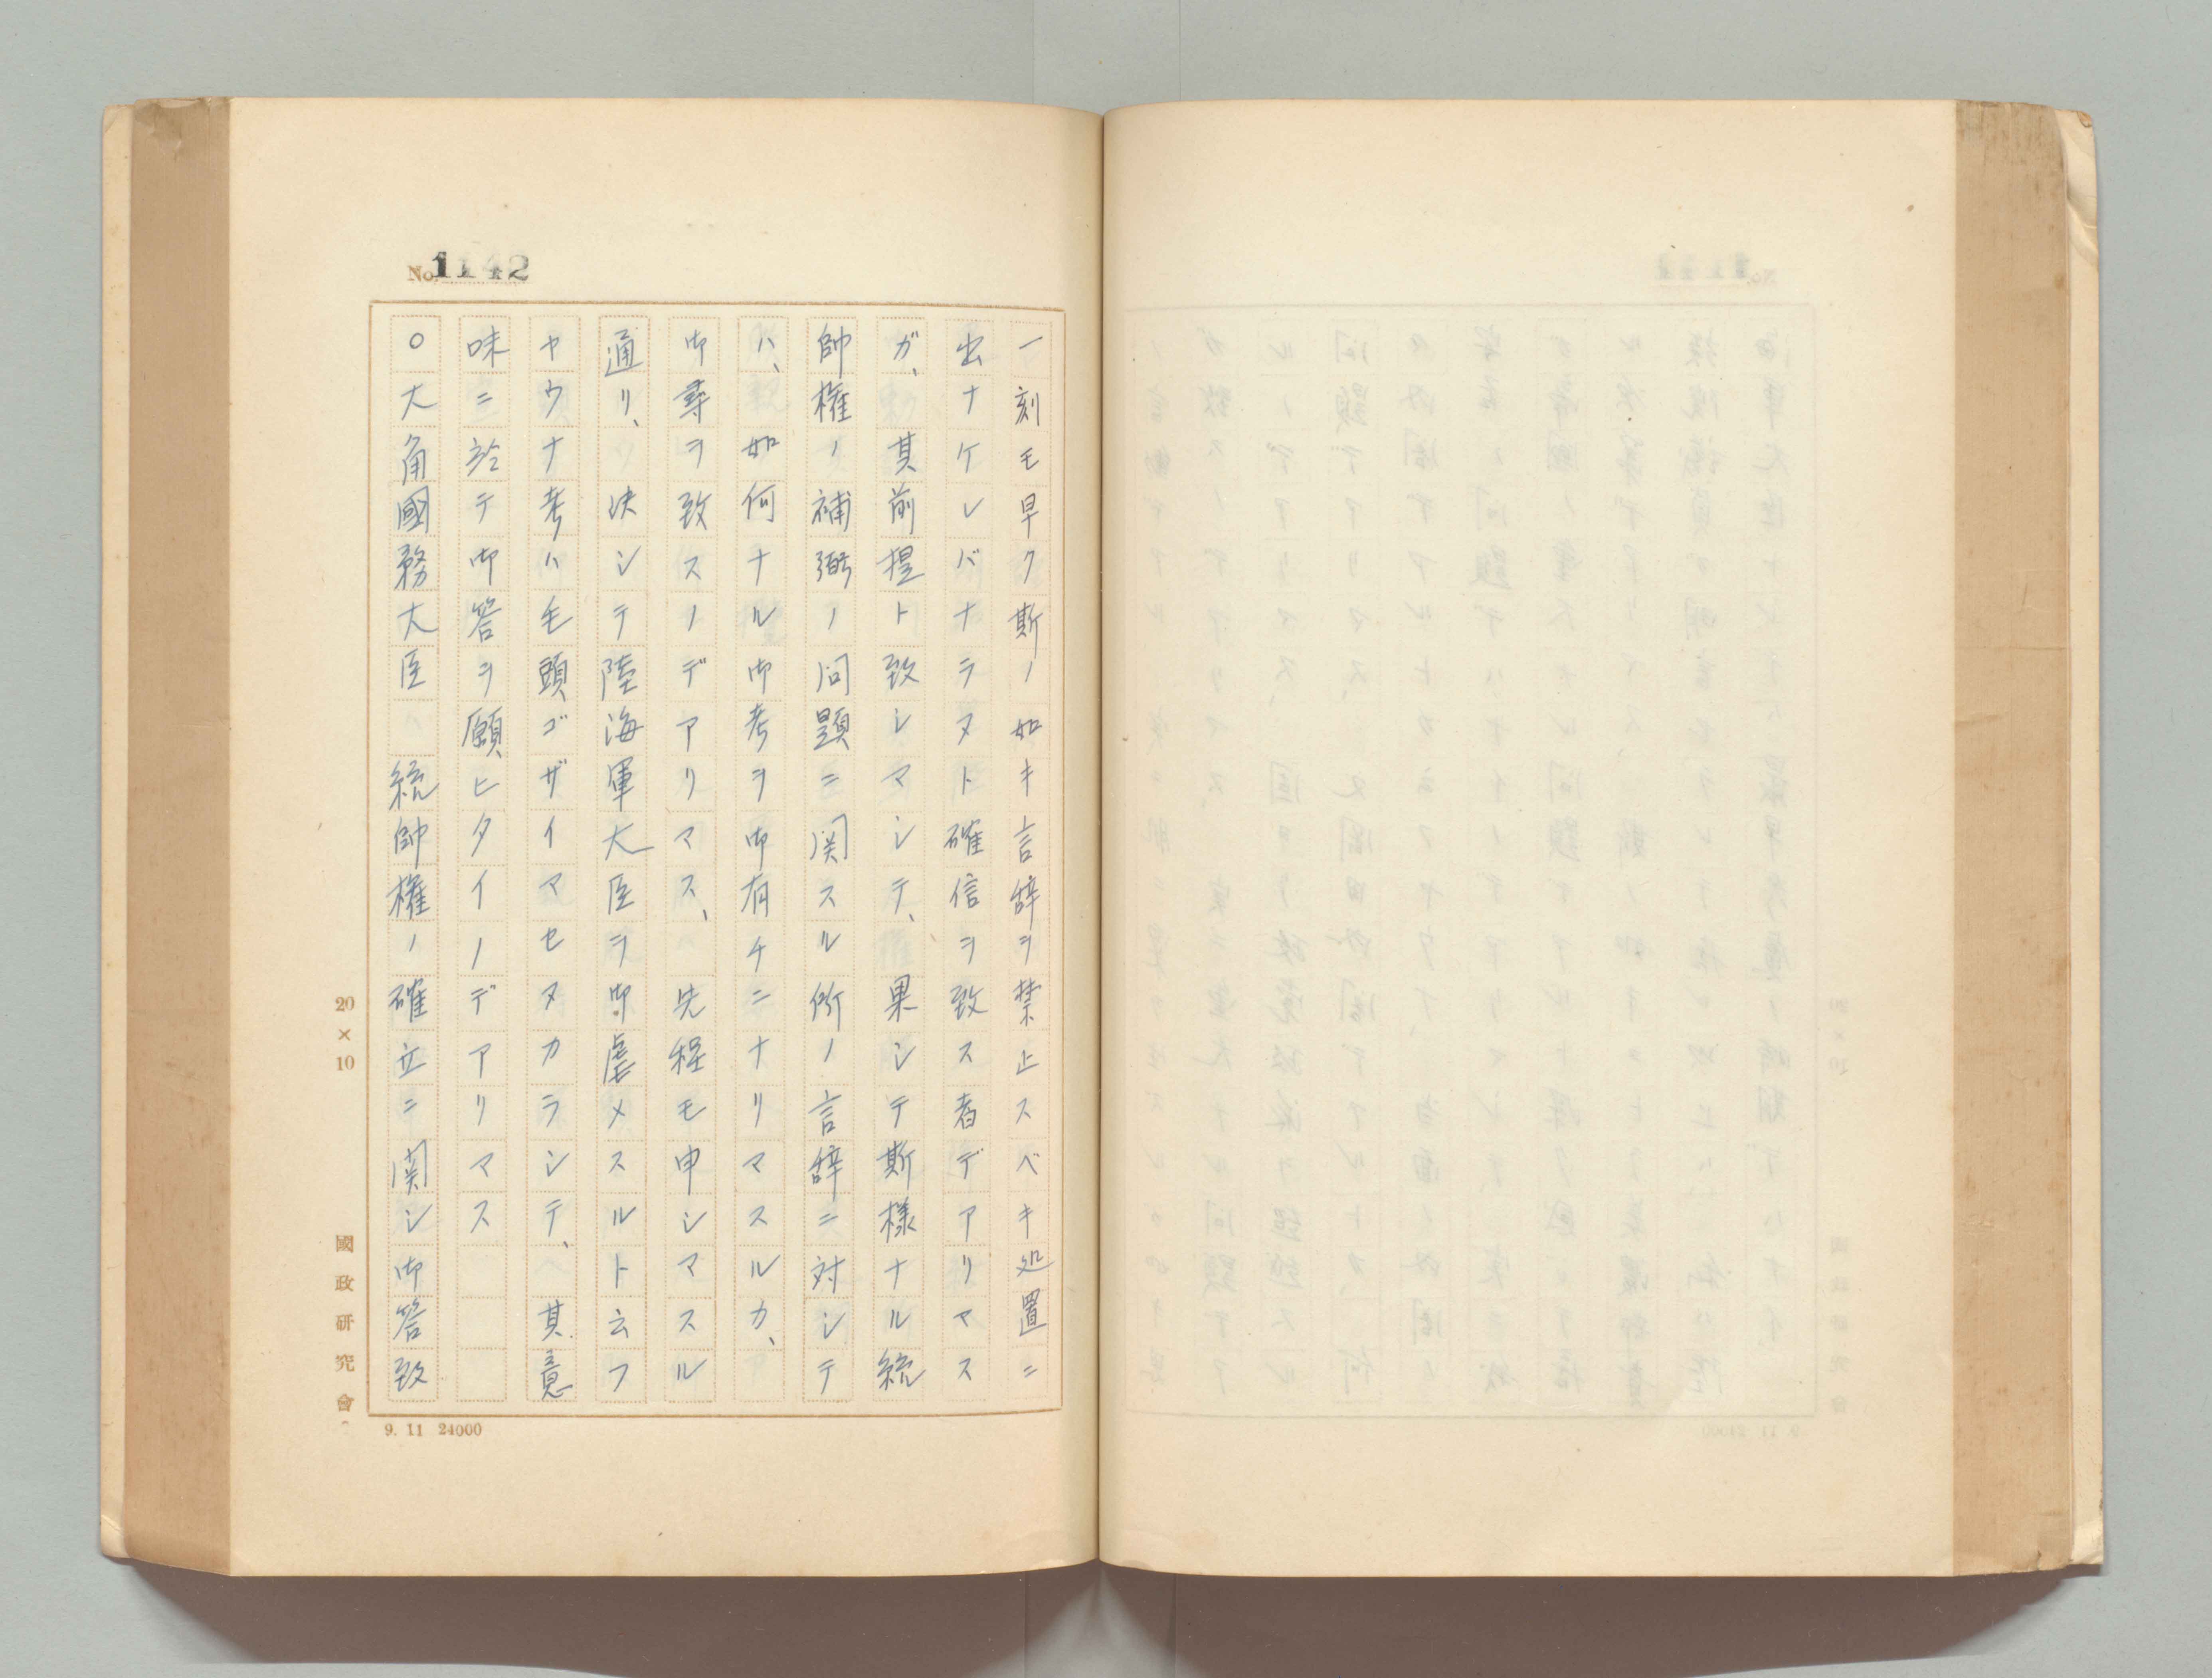 No. 1142
一刻モ早ク斯ノ如キ言辞ヲ禁止スベキ処置ニ
出ナケレバナラヌト確信ヲ致ス者デアリマス
ガ、其前提ト致シマシテ、果シテ斯様ナル統
帥権ノ補弼ノ問題ニ関スル所ノ言辞ニ対シテ
ハ、如何ナル御考ヲ御有チニナリマスルカ、
御尋ヲ致スノデアリマス、先程モ申シマスル
通リ、決シテ陸海軍大臣ヲ御虐メスルト云フ
ヤウナ考ハ毛頭ゴザイマセヌカラシテ、其意
味ニ於テ御答ヲ願ヒタイノデアリマス
○大角國務大臣 統帥権ノ確立ニ関シ御答致
20×10
國政研究會
9. 11 24000